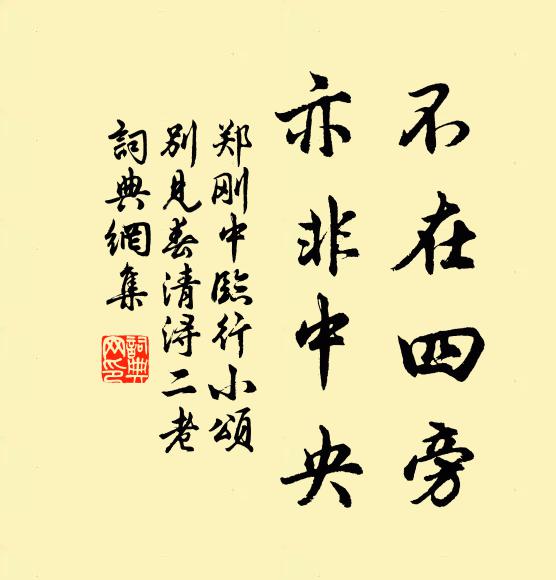 不在四旁
亦非中央
郑刚中臨行小頌
别見春清潯二老
詞典網集
詞典网印